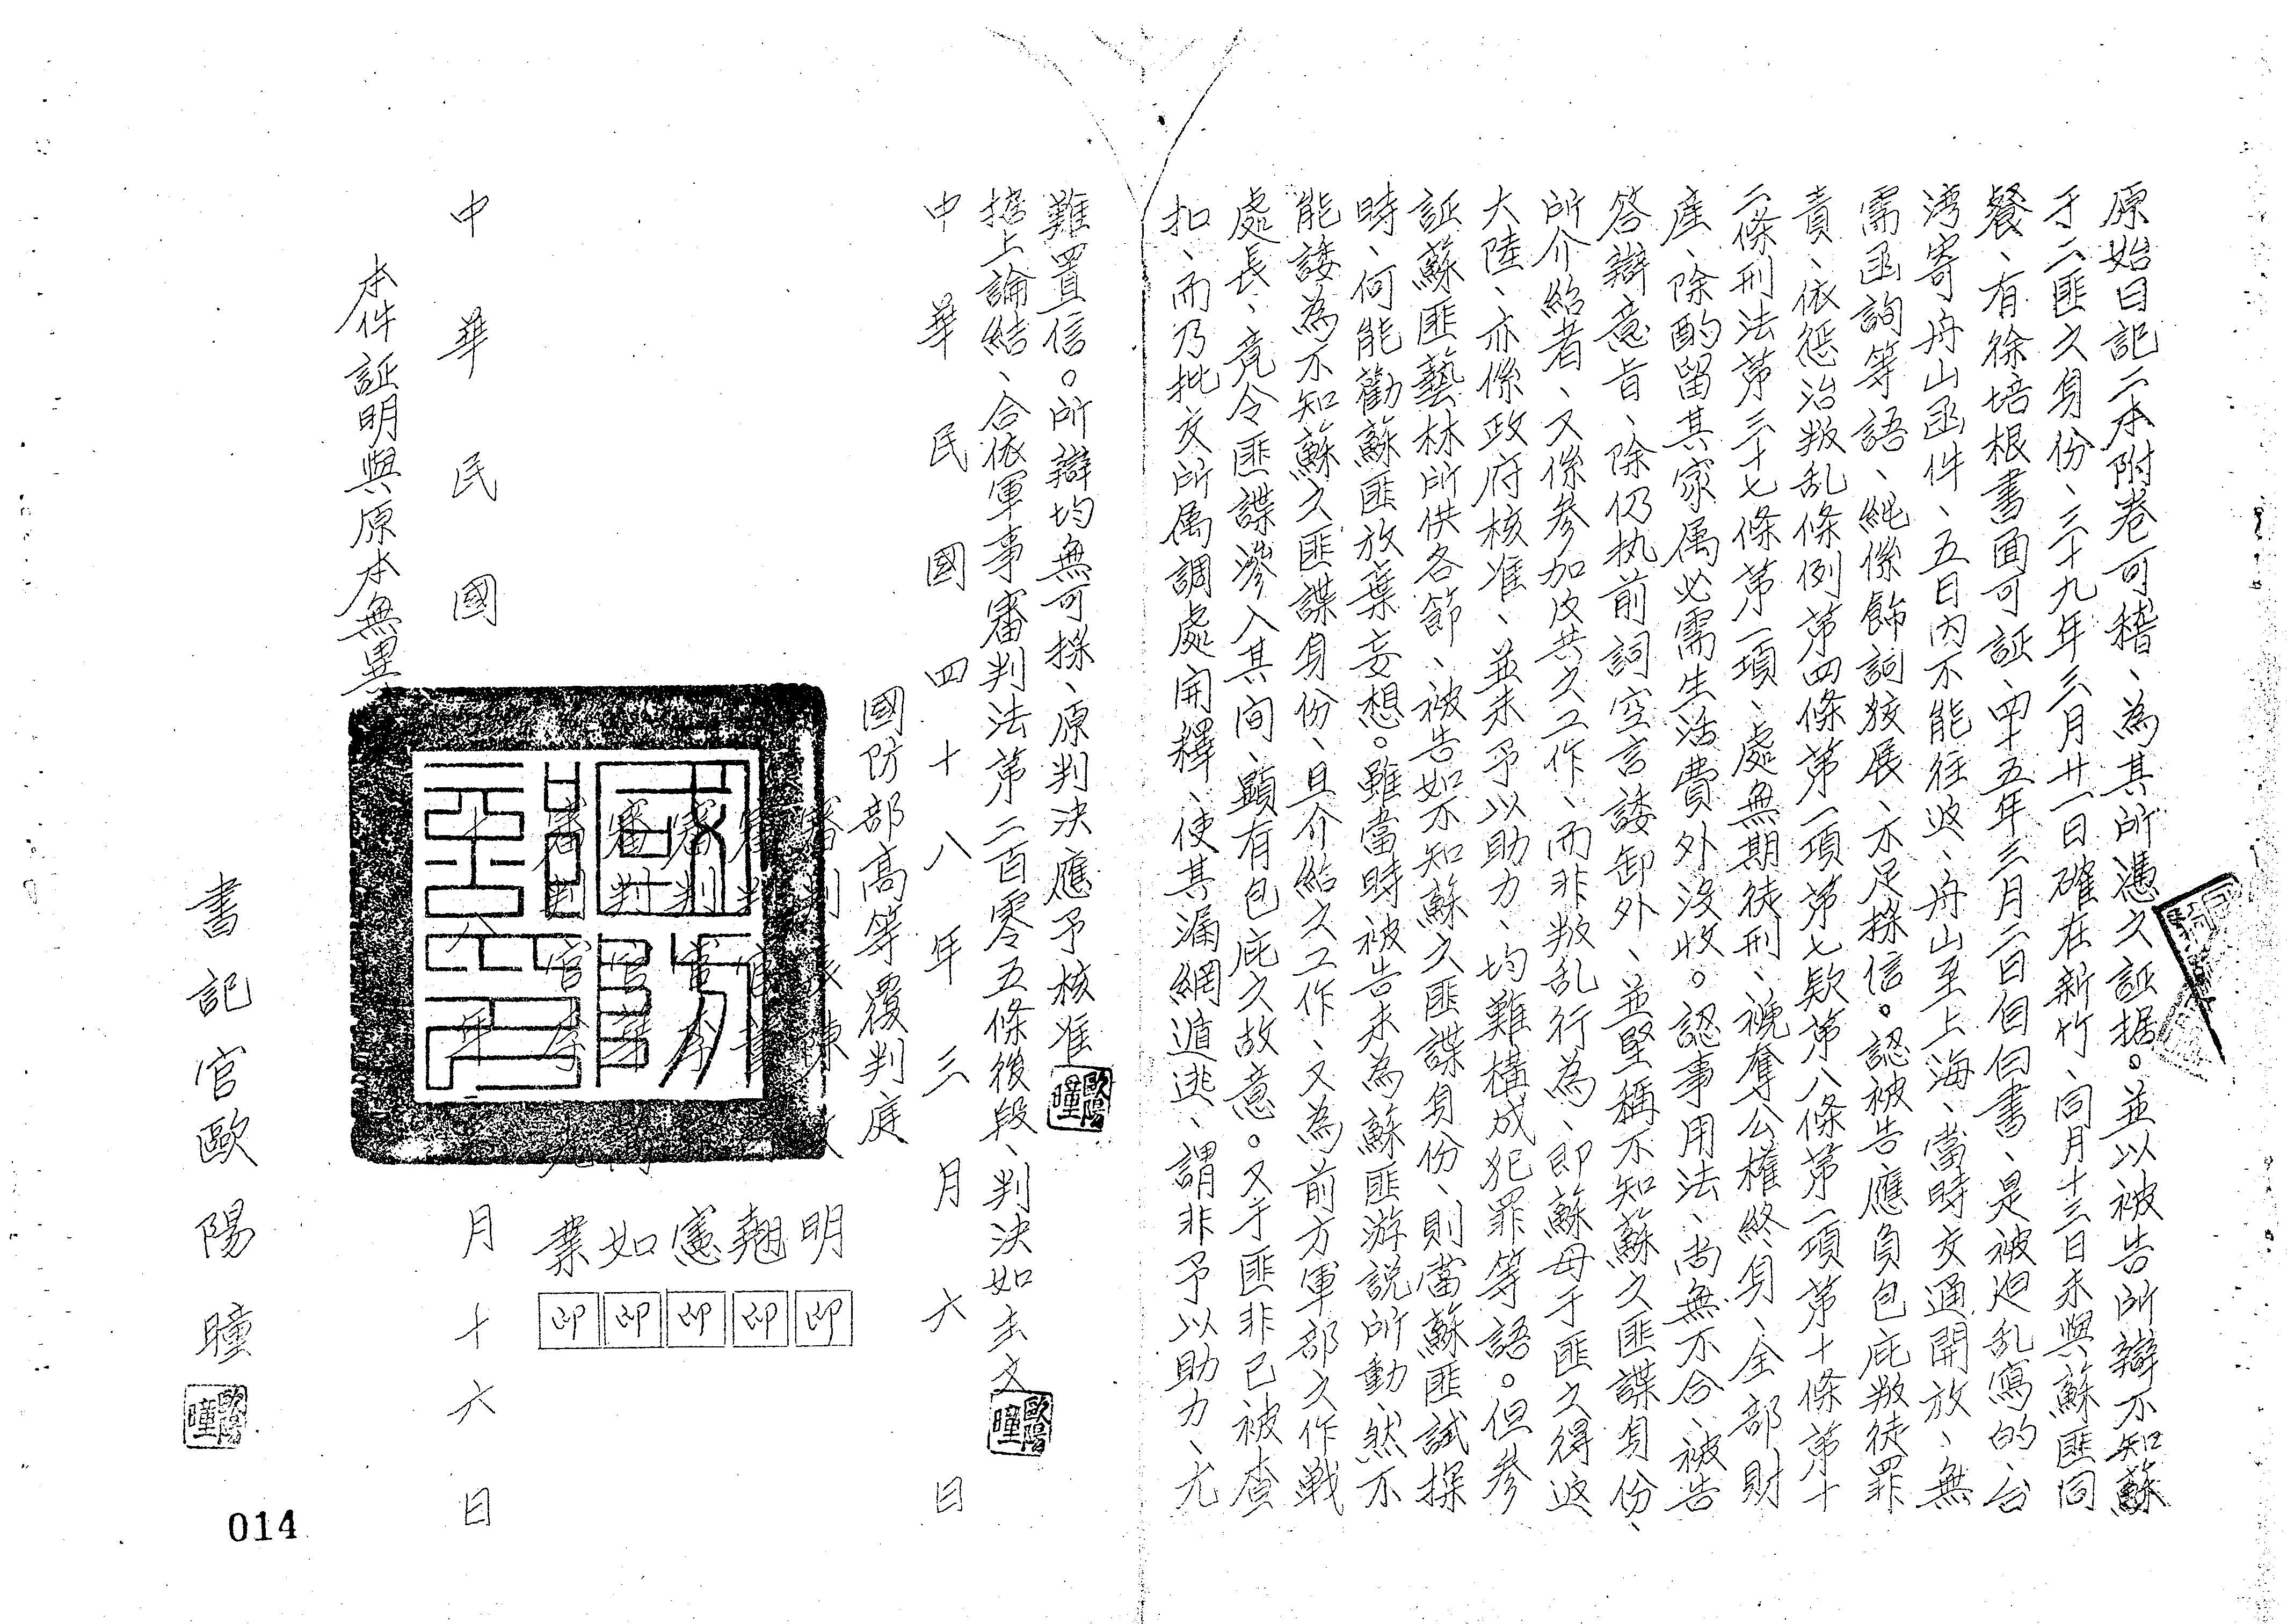 原始日記二本附卷可稽、為其所憑之証据。並以被告所辯不知蘇
于二匪之身份、三十九年三月廿一日確在新竹、同月十三日未與蘇匪同
餐、有徐培根書面可証、四十五年三月二日自白書、是被迫乱寫的、台
湾寄舟山函件、五日内不能往返、舟山至上海、當時交通開放、無
需函詢等語、純係飾詞狡展、不足採信。認被告應負包庇叛徒罪
責、依惩治叛乱條例第四條第一項第七款第八條第一項第十條第十
二條刑法第三十七條第一項、處無期徒刑、褫奪公權終身、全部財
産、除酌留其家属必需生活費外没收。認事用法、尚無不合、被告
答辯意旨、除仍执前詞空言諉卸外、並堅稱不知蘇之匪諜身份、
所介紹者、又係參加反共之工作、而非叛乱行為、即蘇母于匪之得返
大陸、亦係政府核准、並未予以助力、均難構成犯罪等語。但參
証蘇匪藝林所供各節、被告如不知蘇之匪諜身份、則當蘇匪試探
時、何能勸蘇匪放棄妄想。雖當時被告未為蘇匪游説所動、然不
能諉為不知蘇之匪諜身份、且介紹之工作、又為前方軍部之作戰
處長、竟令匪諜滲入其间、顯有包庇之故意。又于匪非已被查
扣、而乃批交所属調處開釋、使其漏網遁逃、謂非予以助力、尤
難置信。所辯均無可採、原判決應予核准
據上論結、合依軍事審判法第二百零五條後段、判決如主文
中華民國四十八年三月六日
國防部高等覆判庭
審判長陳 明 印
審判官 翹 印
審判官 憲 印
審判官 如 印
審判官 業 印
中華民國 十八年 月十六日
本件証明與原本無異
書記官歐陽瞳
歐陽瞳
014